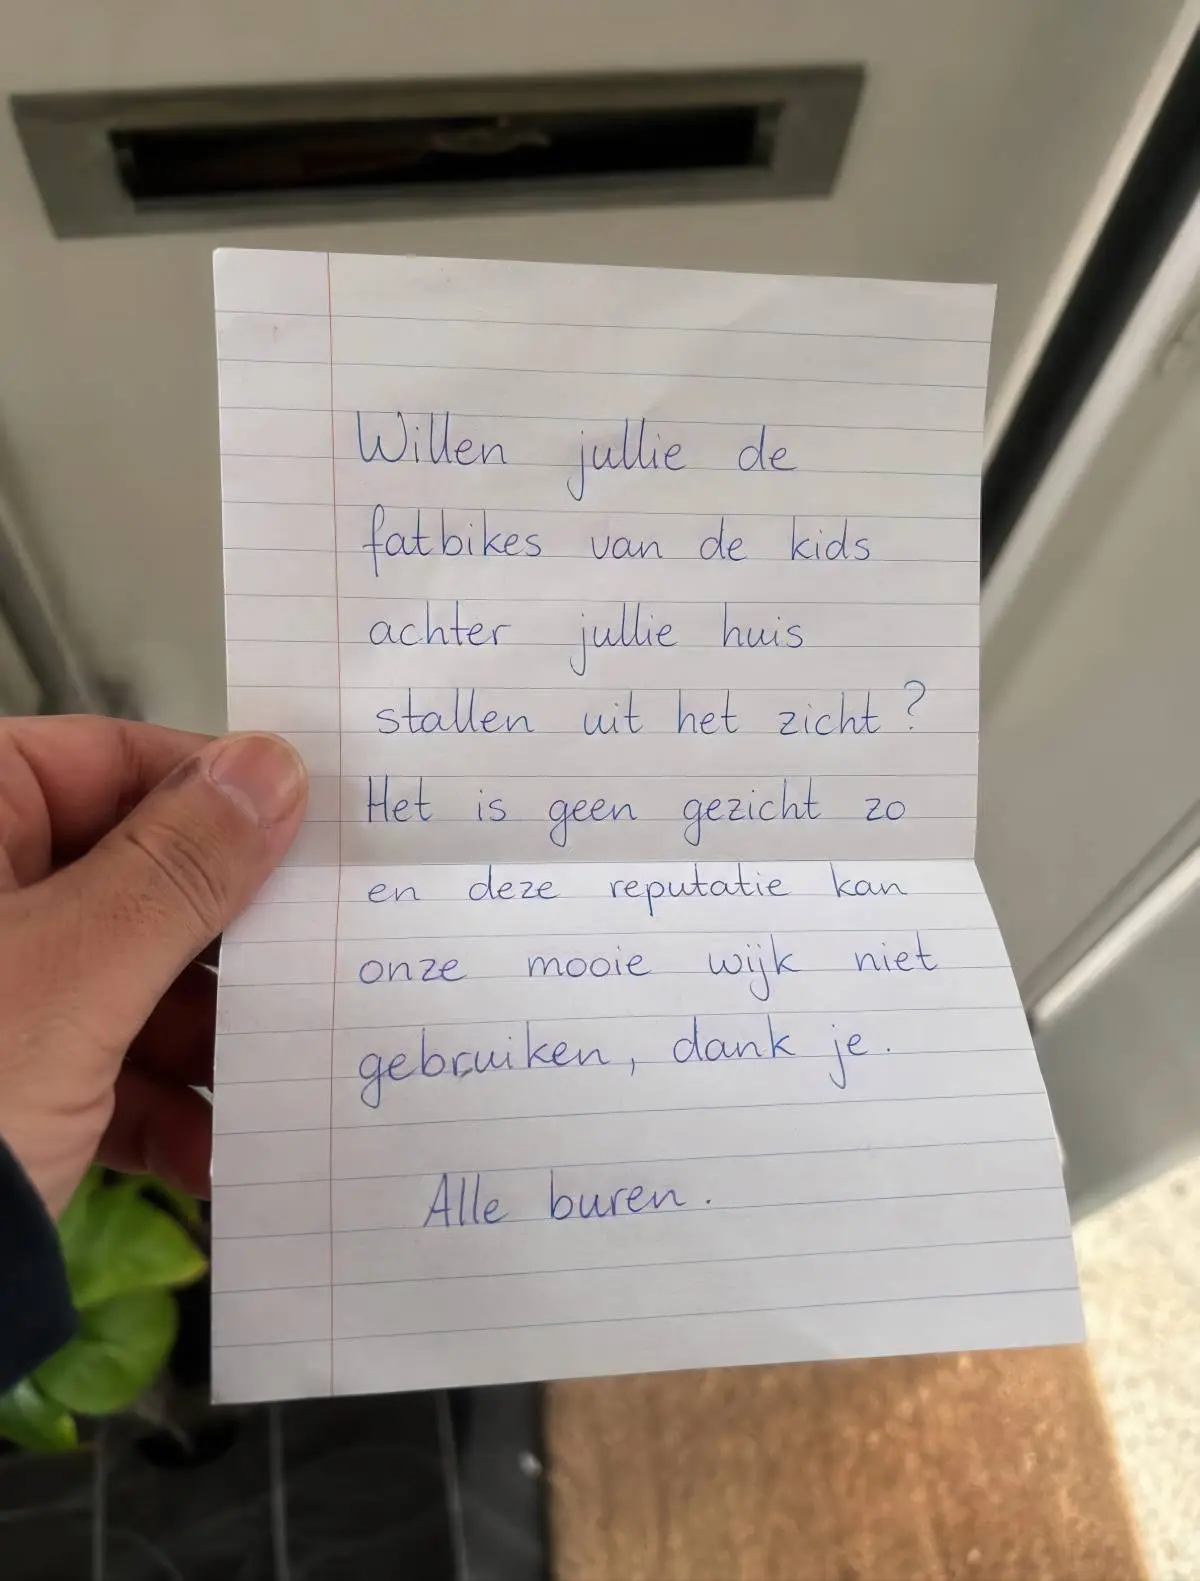 Willen jullie de
fatbikes van de kids
achter jullie huis
stallen uit het zicht?
Het is geen gezicht zo
en deze reputatie kan
onze mooie wijk niet
gebruiken, dank je.
Alle buren.